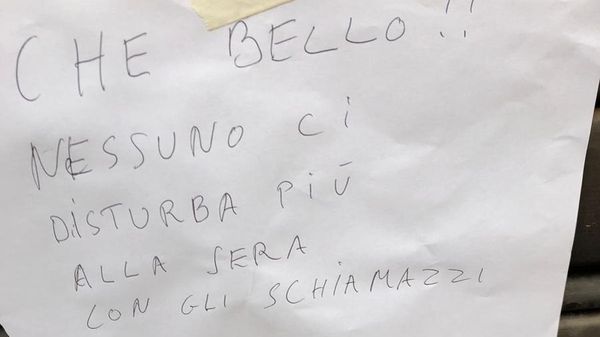 CHE BELLO!!
NESSUNO CI
DISTURBA PIÙ
ALLA SERA
CON GLI SCHIAMAZZI